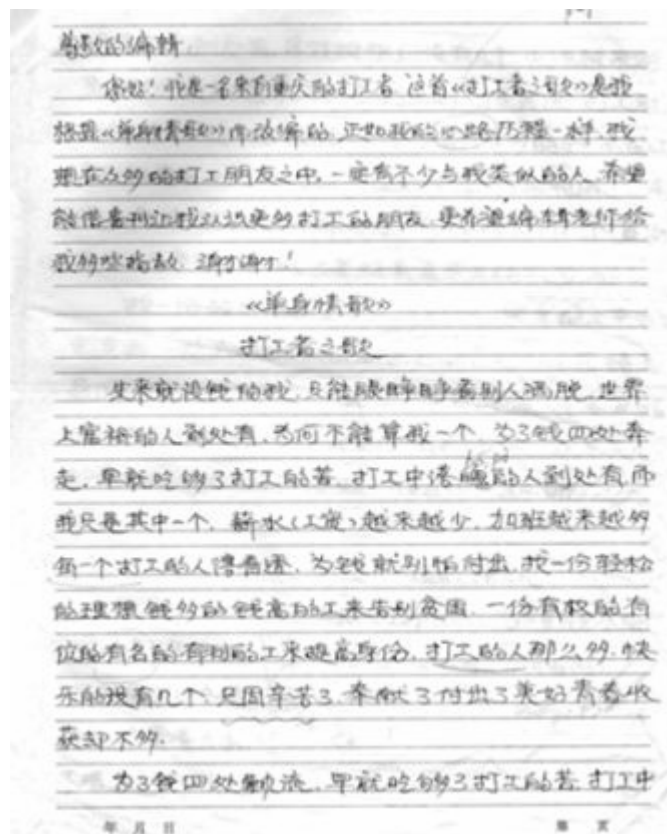 尊敬的编辑
你好！我是一名来到重庆的打工者 这首《打工者之歌》是我
根据《单身情歌》而改编的，正如我的心路历程一样，我
想在众多的打工朋友之中，一定有不少与我类似的人，希望
能借贵刊让我认识更多打工的朋友，更希望编辑老师给
我多些指教，谢谢！
《单身情歌》
打工者之歌
生来就没钱的我，只能眼睁睁看别人洒脱，世界
上富裕的人到处有，为何不能算我一个，为了钱四处奔
走，早就吃够了打工的苦，打工中凄的人到处有而
我只是其中一个，薪水（工资）越来越少，加班越来越多
每一个打工的人得看透，为钱就别怕付出，找一份轻松
的理想钱多的钱高的工来告别贫困，一份有权的有
位的有名的有利的工来提高身份，打工的人那么多，快
乐的没有几个，只因辛苦了，奉献了付出了美好青春收
获却不多。
为了钱四处飘流，早就吃够了打工的苦，打工中
年 月 日
第 页